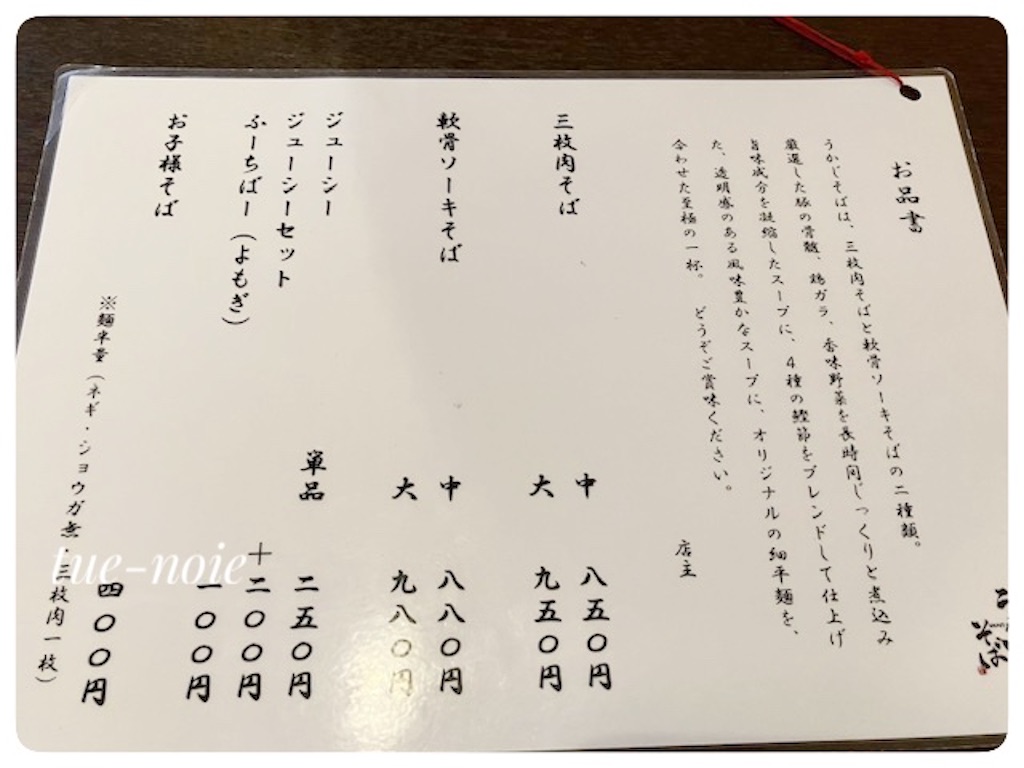 お品書
うかじそばは、三枚肉そばと軟骨ソーキそばの二種類。
厳選した豚の骨髄、鶏ガラ、香味野菜を長時間じっくりと煮込み
旨味成分を凝縮したスープに、4種の鰹節をブレンドして仕上げ
た、透明感のある風味豊かなスープに、オリジナルの細平麺を、
合わせた至極の一杯。 どうぞご賞味ください。
店主
三枚肉そば
中 八五〇円
大 九五〇円
軟骨ソーキそば
中 八八〇円
大 九八〇円
ジューシー 単品 二五〇円
ジューシーセット +二〇〇円
ふーちばー(よもぎ) 一〇〇円
お子様そば 四〇〇円
※麺半量(ネギ・ショウガ無・三枚肉一枚)
そば
tue-noie